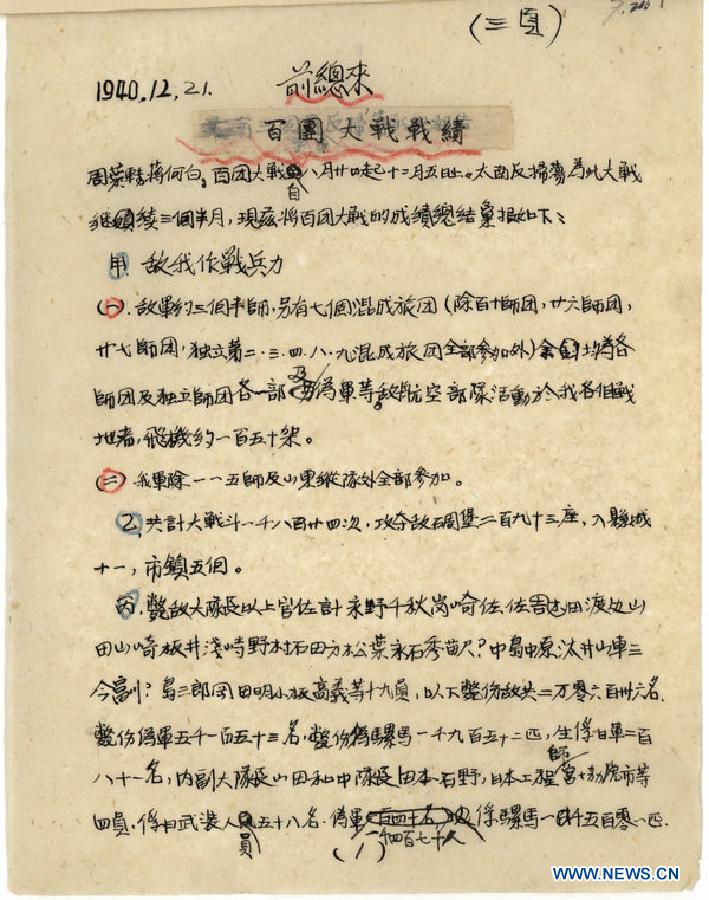 (三頁)
1940.12.21.
前總來
百團大戰戰績
周葉轉蔣何白。百团大戰自八月廿日起十二月五日止。太南反掃蕩為此大戰
继續三個半月,現玆將百团大戰的成績總结彙报如下:
甲. 敌我作戰兵力
(一). 敌軍約三個半師,另有七個混成旅团(除百十師团,廿六師团,
廿七師团,独立第二.三.四.八.九混成旅团全部參加外)余均為各
師团及独立師团各一部及偽軍等,敌航空部隊活動於我各個戰
地者,飛機約一百五十架。
(二) 我軍除一一五師及山東縱隊外全部參加。
乙. 共計大戰斗一千八百廿四次.攻夺敌石周堡二百九十三座,入縣城
十一,市鎮五個。
丙. 斃敌大隊長以上官佐計永野千秋岗崎佐.佐
田山崎板井淺時野村石田方松葉永石秀苗尺?中島中原汰井山車三
島二郎冈田明小板高義等十九員,以下斃伤敌共二万零六百卅六名.
斃伤偽軍五千一百五十三名.斃伤骡馬一千九百五十二匹,生俘日軍二百
八十一名,内副大隊長山田和中隊長田本石野,日本工程師等
四員.俘日武装人員五十八名.偽軍一千四百七十人俘騾馬一千五百零一匹.
(1)
WWW.NEWS.CN